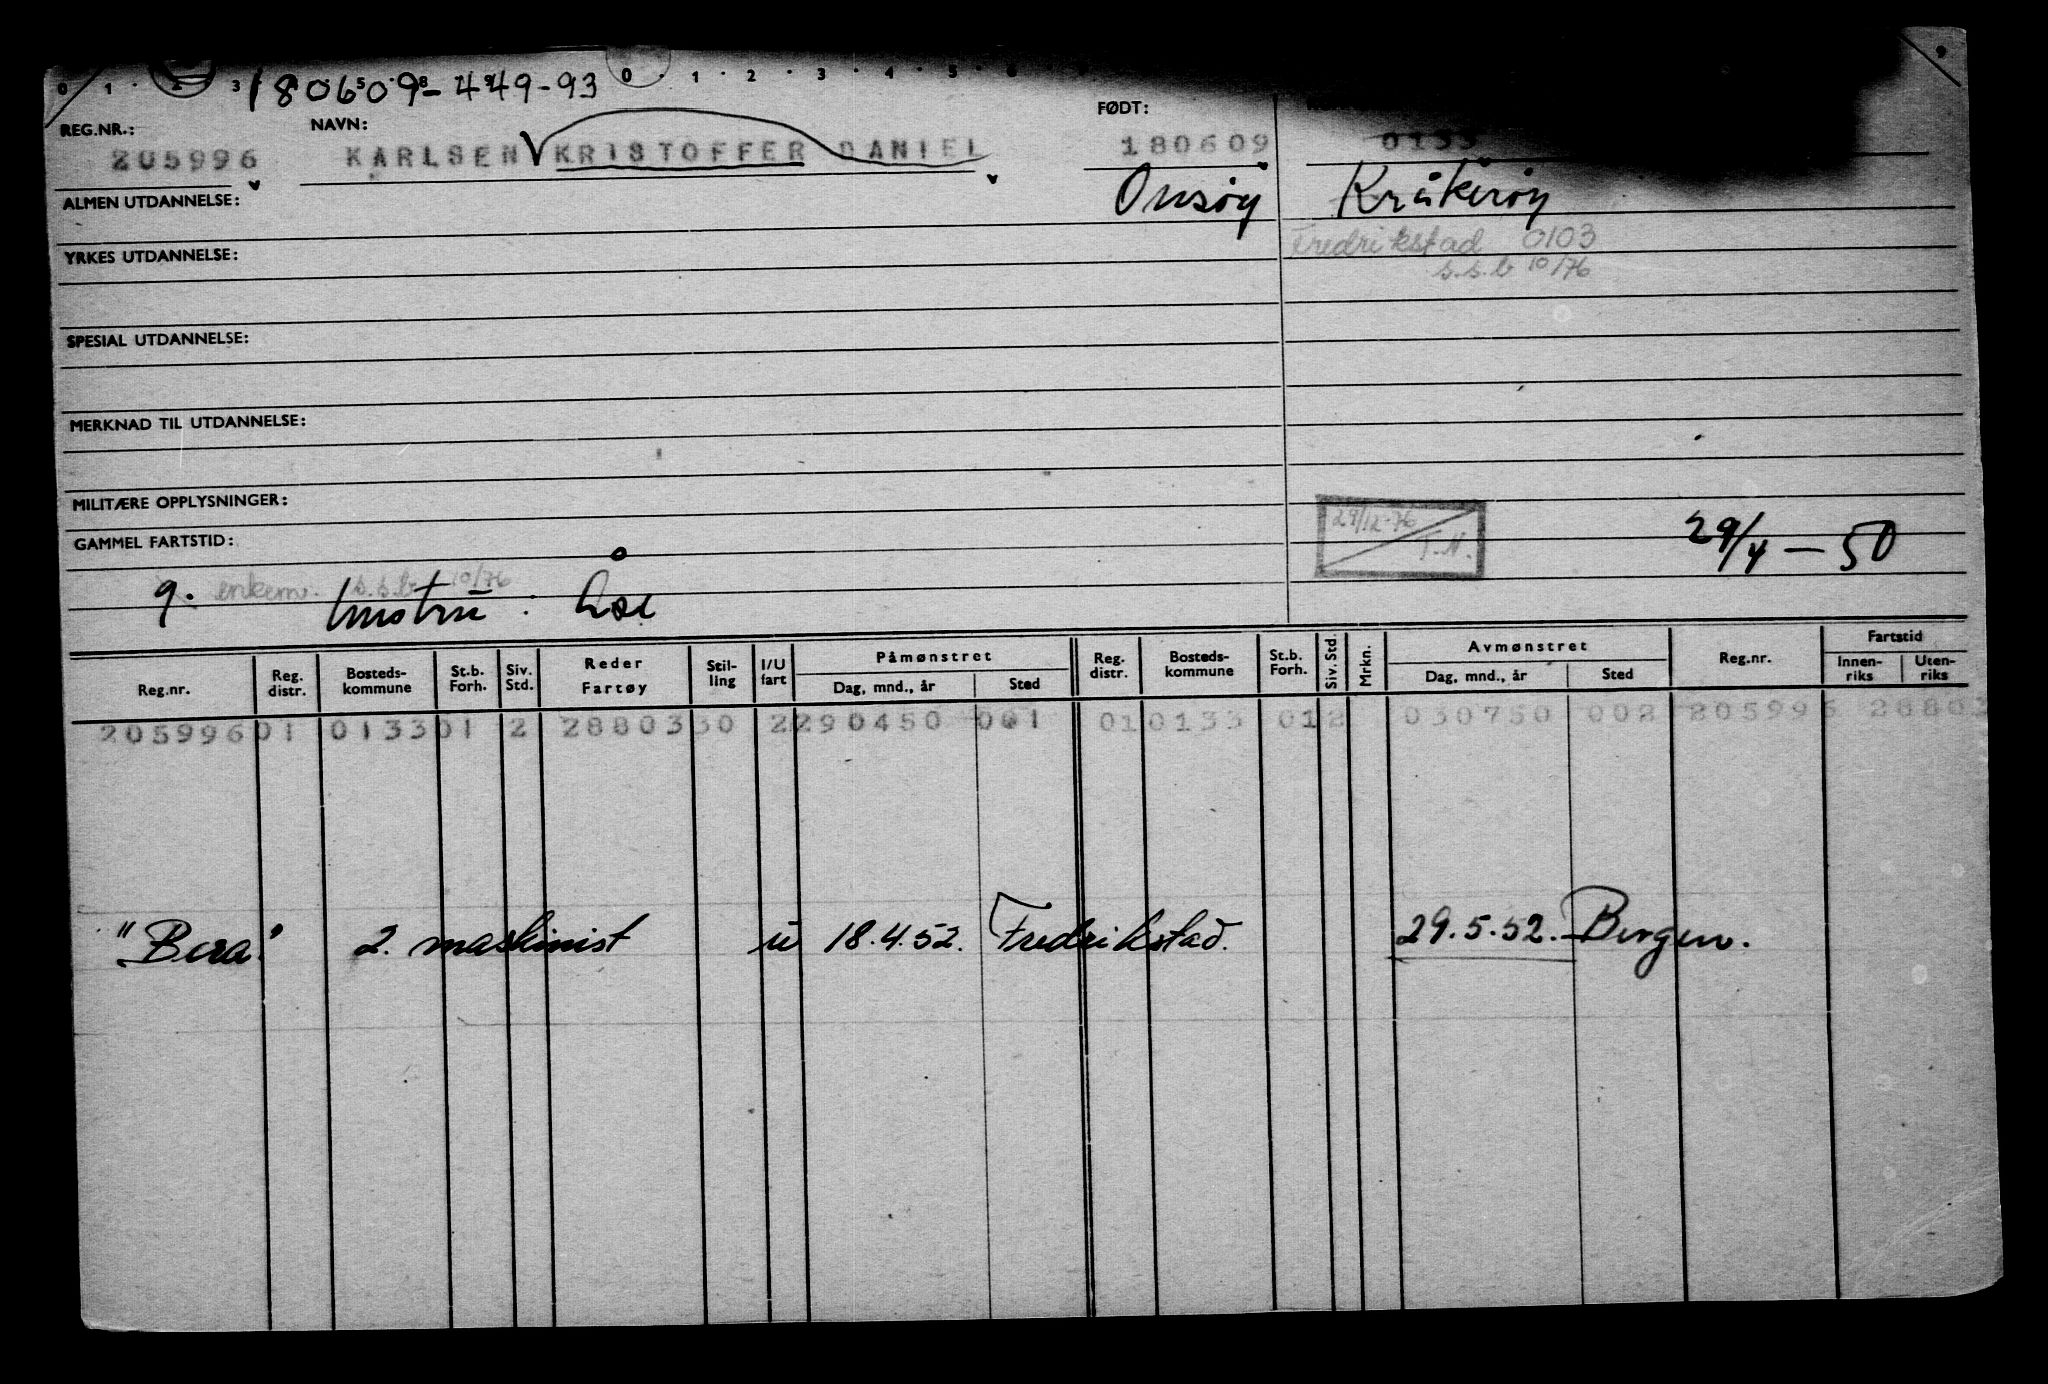 180609-449-93
0 1 2 3 0 1 2 3 4 5 6 9
REG.NR.: NAVN: FØDT:
205996 KARLSEN KRISTOFFER DANIEL 180609 0133
ALMEN UTDANNELSE: Onsøy Kråkerøy
Fredrikstad 0103
YRKES UTDANNELSE: s.s.b 10/76
SPESIAL UTDANNELSE:
MERKNAD TIL UTDANNELSE:
MILITÆRE OPPLYSNINGER:
29/12-76 T.N. 29/4-50
GAMMEL FARTSTID:
g. enkem. s.s.b 10/76
hustru :
Reg.nr. Reg. distr. Bosteds-kommune St.b. Forh. Siv. Std. Reder Fartøy Stil-ling I/U fart Påmønstret Dag, mnd., år Sted Reg. distr. Bosteds-kommune St.b. Forh. Siv. Std. Mrkn. Avmønstret Dag, mnd., år Sted Reg.nr. Fartstid Innen-riks Uten-riks
205996 01 0133 01 2 28803 30 2 290450 001 01 0133 01 2 030750 002 205996 28803
"Bera" 2. maskinist u 18.4.52. Fredrikstad. 29.5.52. Bergen.